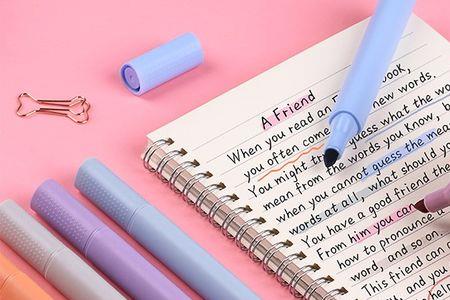 A Friend
When you read an E book,
you often come new words,
You might guess what the wo
mean from the words you know, b
when you cannot guess the mea
words at all, what should yo
You have a good friend the
From him you ca
how to pronounce a
word, and so on
This friend can